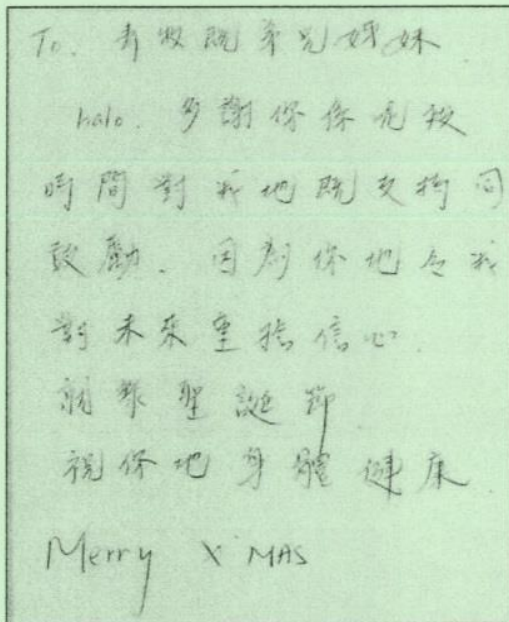 To. 青牧既弟兄姊妹
halo. 多謝你係呢段
時間對我地既支持同
鼓勵. 因為你地令我
對未來重拾信心.
聖誕節
祝你地身體健康.
Merry X'MAS